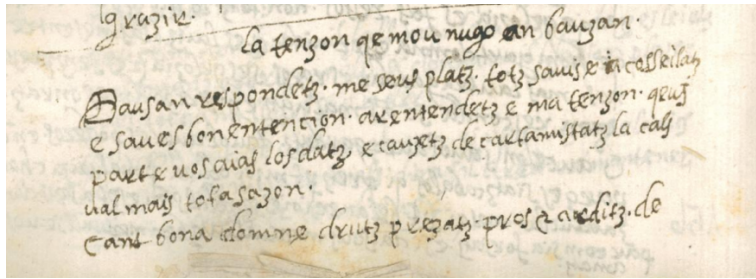 grazir.
la tenzon qe mou nugo an bauzan.
Bausan respondetz. me seus platz. totz savis e acosseilatz
e saves bon entencion. ar entendetz e ma tenzon. qeus
part e vos aias los datz, e cauzetz de cartamistatz la cals
val mais tota sazon.
Cant bona domne drutz prezatz. pros & arditz. de